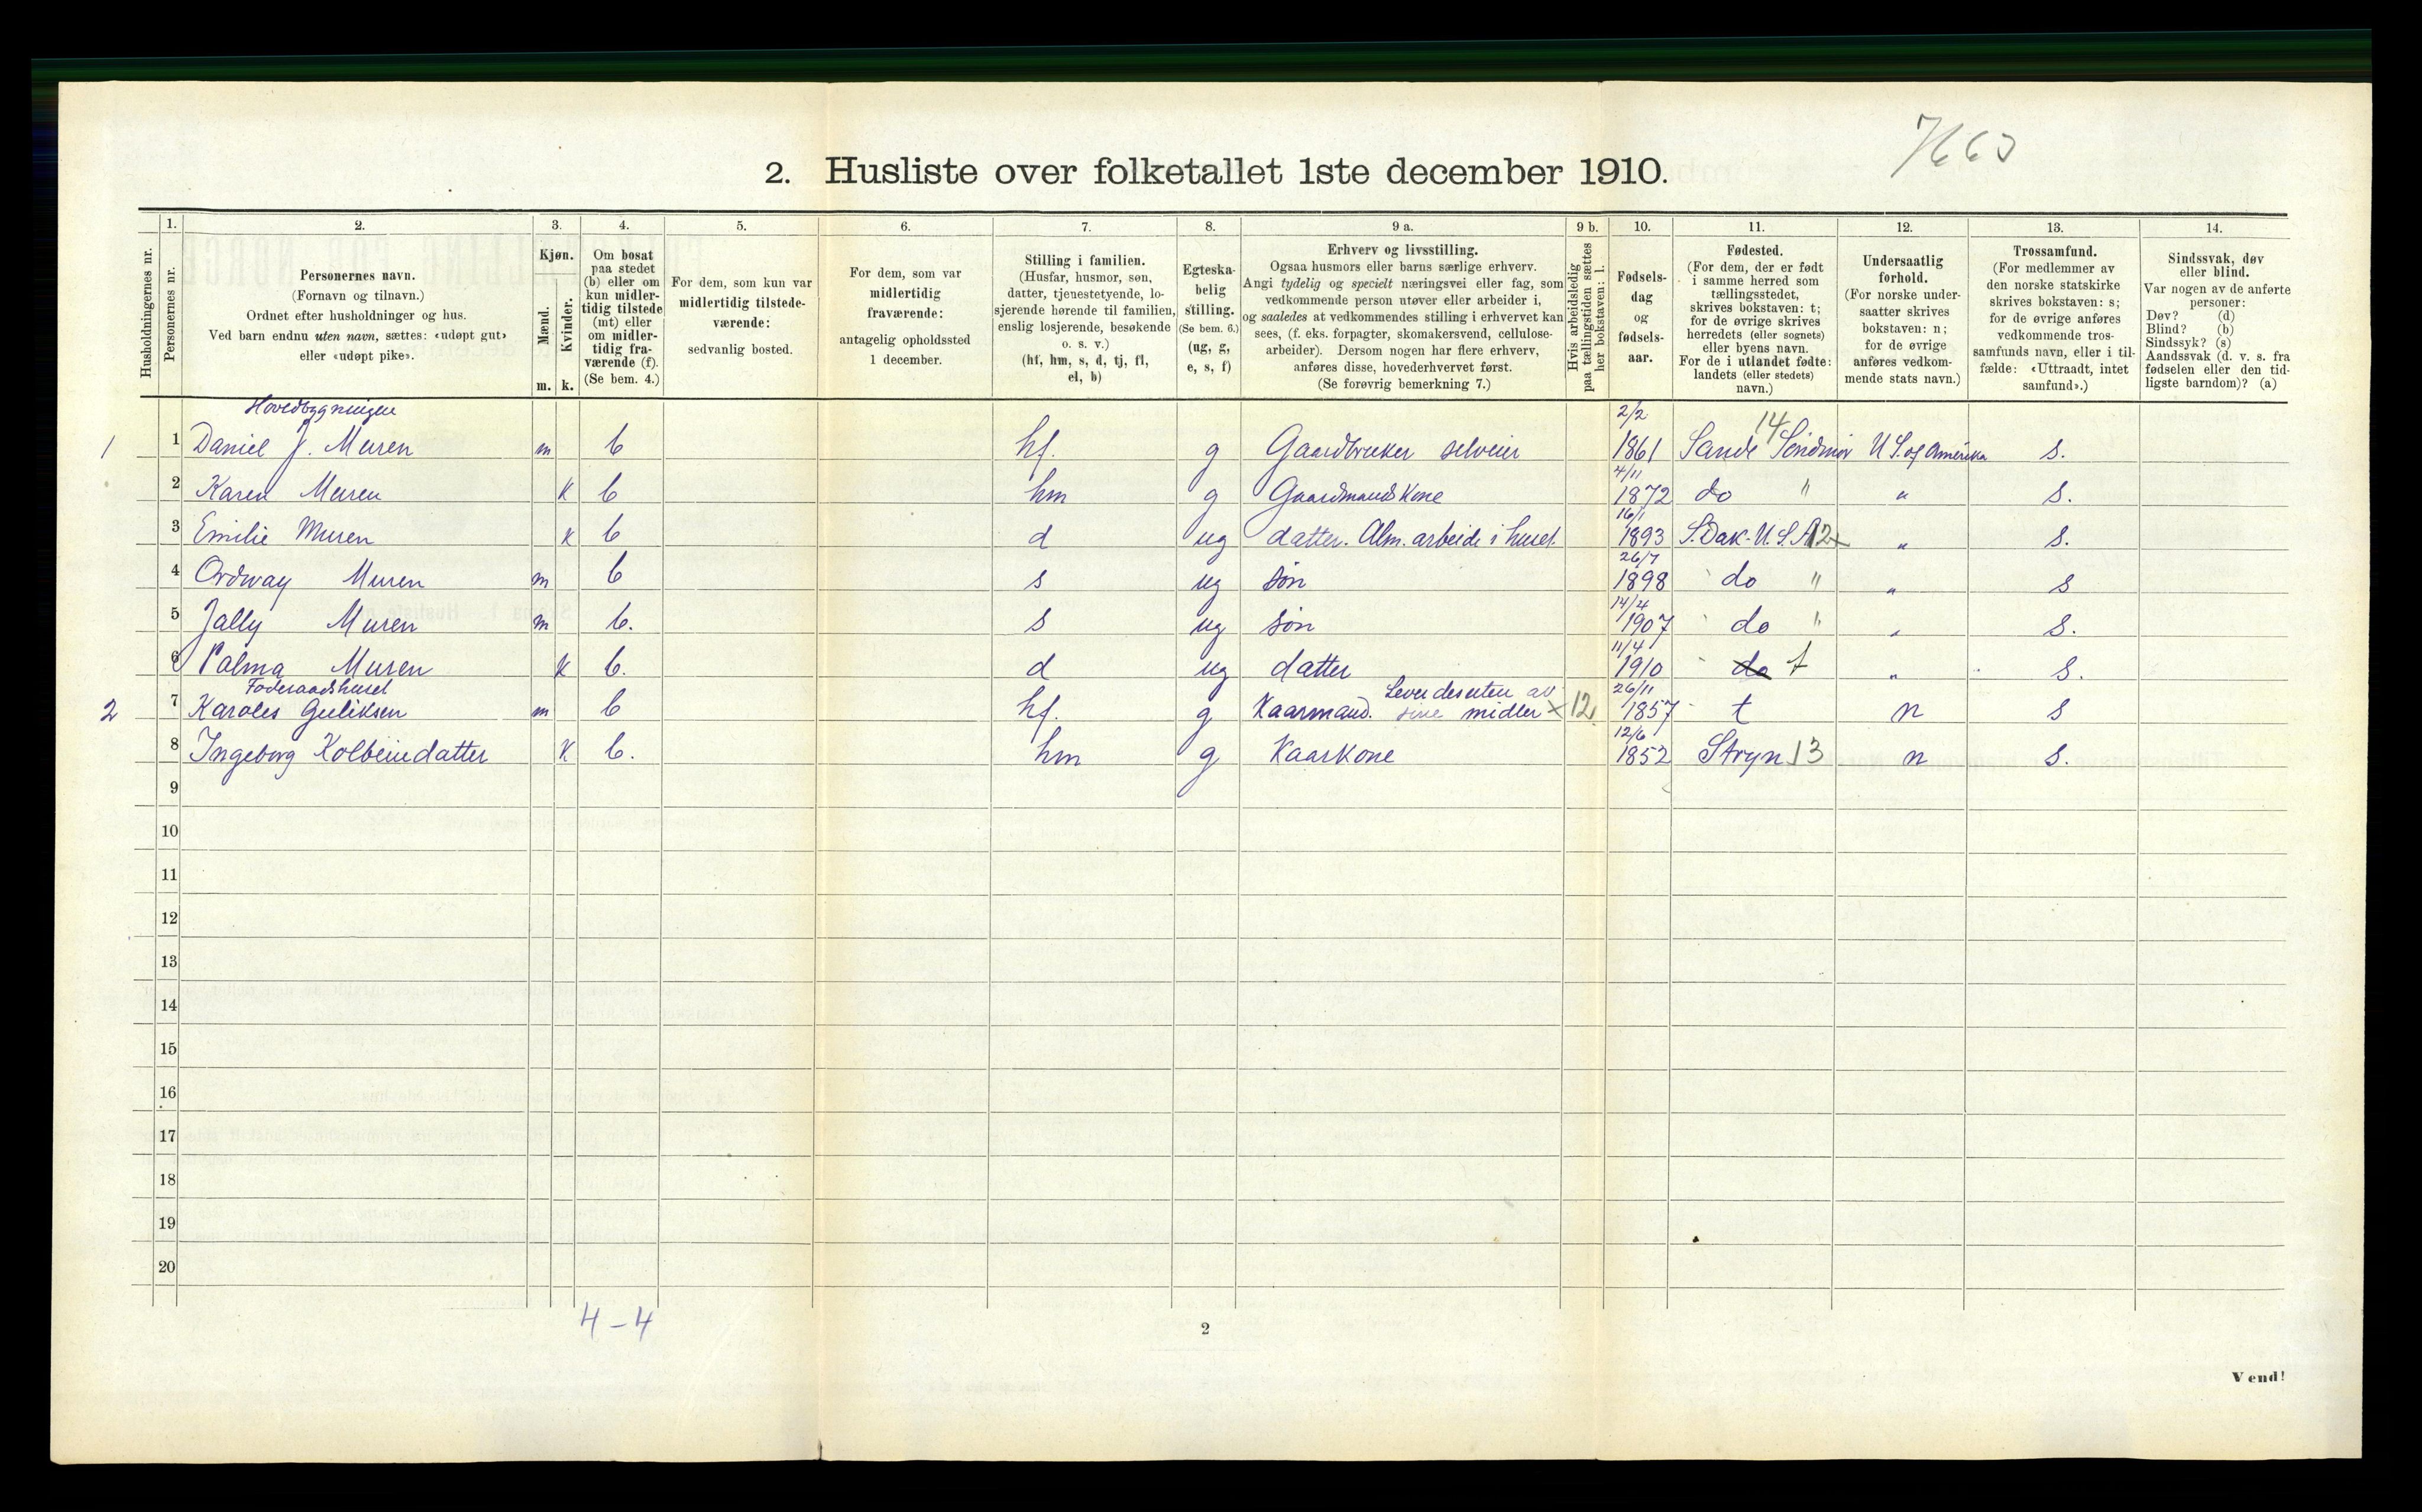 7663
2. Husliste over folketallet 1ste december 1910.
Husholdningernes nr.
1.
Personernes nr.
2.
Personernes navn.
(Fornavn og tilnavn.)
Ordnet efter husholdninger og hus.
Ved barn endnu uten navn, sættes: «udøpt gut»
eller «udøpt pike».
3.
Kjøn.
Mænd.
Kvinder.
m. k.
4.
Om bosat
paa stedet
(b) eller om
kun midler-
tidig tilstede
(mt) eller
om midler-
tidig fra-
værende (f).
(Se bem. 4.)
5.
For dem, som kun var
midlertidig tilstede-
værende:
sedvanlig bosted.
6.
For dem, som var
midlertidig
fraværende:
antagelig opholdssted
1 december.
7.
Stilling i familien.
(Husfar, husmor, søn,
datter, tjenestetyende, lo-
sjerende hørende til familien,
enslig losjerende, besøkende
o. s. v.)
(hf, hm, s, d, tj, fl,
el, b)
8.
Egteska-
belig
stilling.
(Se bem. 6.)
(ug, g,
e, s, f)
9 a.
Erhverv og livsstilling.
Ogsaa husmors eller barns særlige erhverv.
Angi tydelig og specielt næringsvei eller fag, som
vedkommende person utøver eller arbeider i,
og saaledes at vedkommendes stilling i erhvervet kan
sees, (f. eks. forpagter, skomakersvend, cellulose-
arbeider). Dersom nogen har flere erhverv,
anføres disse, hovederhvervet først.
(Se forøvrig bemerkning 7.)
9 b.
Hvis arbeidsledig
paa tællingstiden sættes
her bokstaven: l.
10.
Fødsels-
dag
og
fødsels-
aar.
11.
Fødested.
(For dem, der er født
i samme herred som
tællingsstedet,
skrives bokstaven: t;
for de øvrige skrives
herredets (eller sognets)
eller byens navn.
For de i utlandet fødte:
landets (eller stedets)
navn.)
12.
Undersaatlig
forhold.
(For norske under-
saatter skrives
bokstaven: n;
for de øvrige
anføres vedkom-
mende stats navn.)
13.
Trossamfund.
(For medlemmer av
den norske statskirke
skrives bokstaven: s;
for de øvrige anføres
vedkommende tros-
samfunds navn, eller i til-
fælde: «Uttraadt, intet
samfund».)
14.
Sindssvak, døv
eller blind.
Var nogen av de anførte
personer:
Døv? (d)
Blind? (b)
Sindssyk? (s)
Aandssvak (d. v. s. fra
fødselen eller den tid-
ligste barndom)? (a)
Hovedbygningen
1 1 Daniel J. Muren m b hf. g Gaardbruker selveier 2/2 1861 Sande Söndmör 14 U S. of Amerika s.
2 Karen Muren k b hm g Gaardmands Kone 4/11 1872 do " " s.
3 Emilie Muren k b d ug datter. Alm. arbeide i huset. 16/1 1893 S. Dak. U. S. A 12 x " s.
4 Ordway Muren m b s ug søn 26/7 1898 do " " s
5 Jally Muren m b. s ug søn 14/4 1907 do " " s.
6 Palma Muren k b. d ug datter 11/4 1910 do t " s.
Føderaadshuset
2 7 Karoles Guliksen m b hf. g Kaarmand. Lever desuten av sine midler x 12 26/11 1857 t n s
8 Ingeborg Kolbeinsdatter k b. hm g Kaarkone 12/6 1852 Stryn 13 n s.
9
10
11
12
13
14
15
16
17
18
19
20
4 – 4
2
Vend!